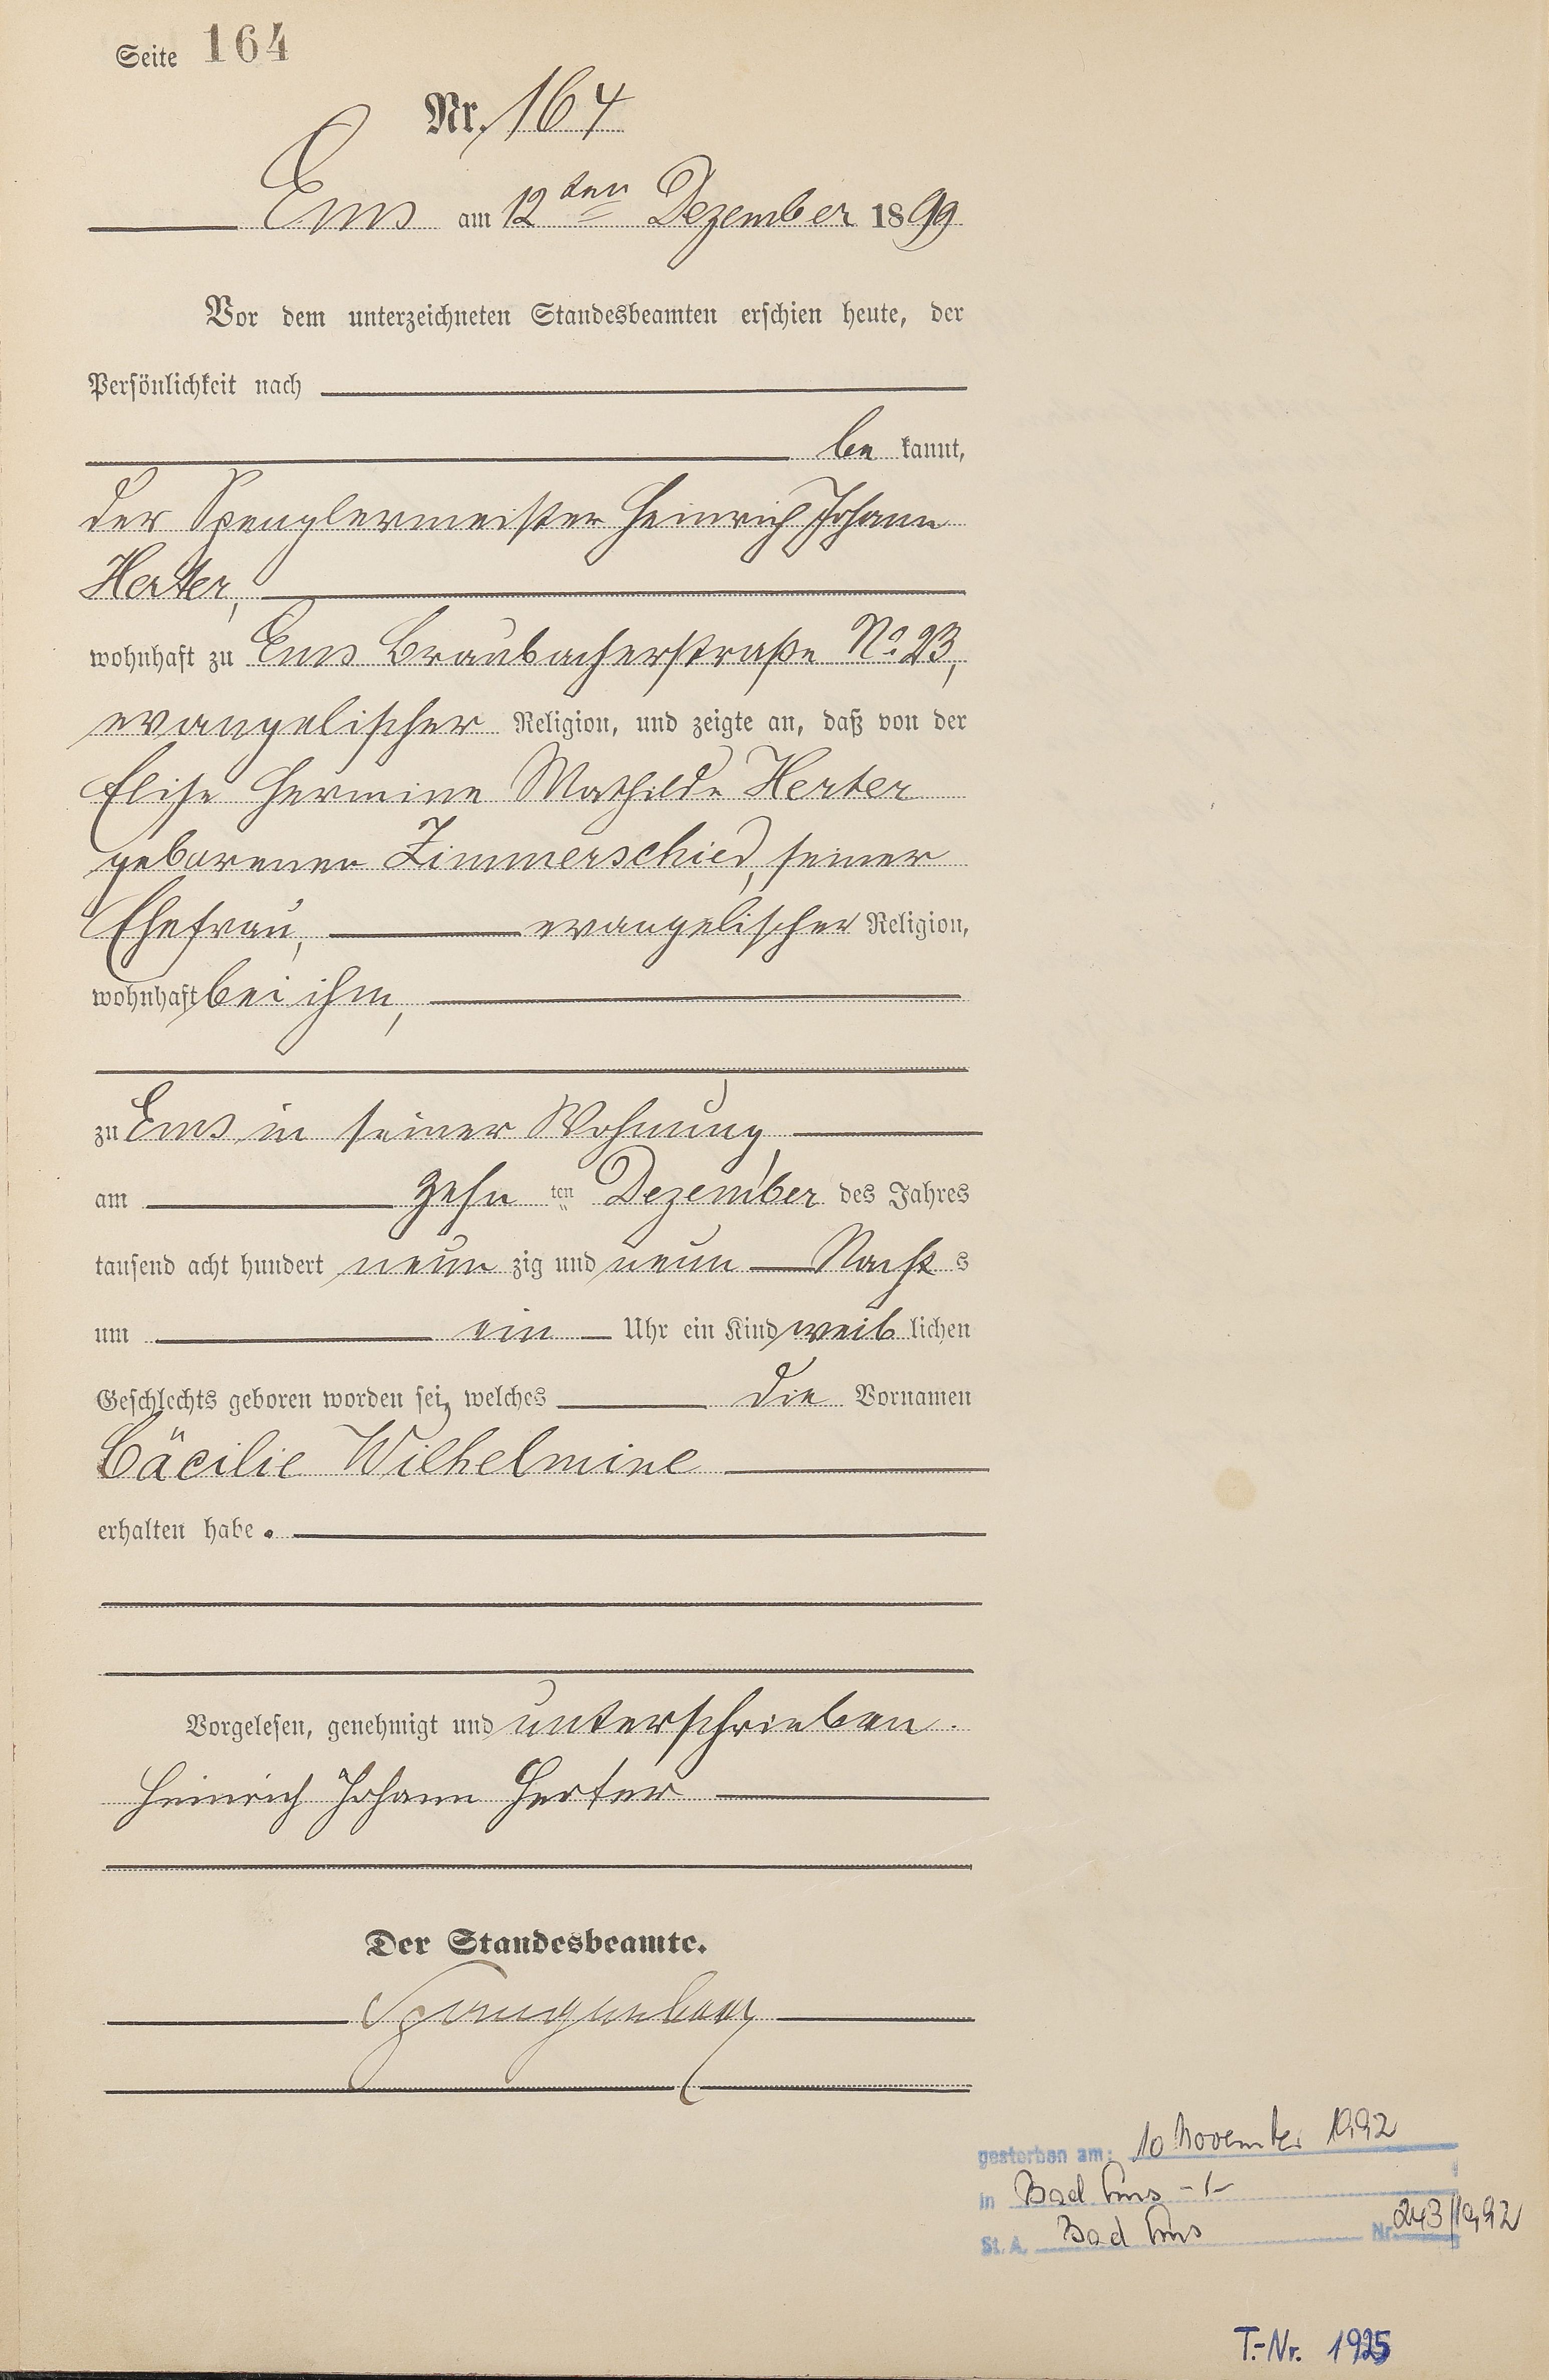 Seite 164
Nr. 164
Ems am 12ten Dezember 1899
Vor dem unterzeichneten Standesbeamten erschien heute, der
Persönlichkeit nach
be kannt,
der Spenglermeister Heinrich Johann
Herter,
wohnhaft zu Ems Braubacherstraße No. 23,
evangelischer Religion, und zeigte an, daß von der
Elise Hermine Mathilde Herter
geborenen Zimmerschied, seiner
Ehefrau, evangelischer Religion,
wohnhaft bei ihm,
zu Ems in seiner Wohnung,
am zehn ten Dezember des Jahres
tausend acht hundert neun zig und neun Nacht s
um ein Uhr ein Kind weib lichen
Geschlechts geboren worden sei, welches die Vornamen
Cäcilie Wilhelmine
erhalten habe.
Vorgelesen, genehmigt und unterschrieben.
Heinrich Johann Herter
Der Standesbeamte.
gestorben am: 10 November 1992
in Bad Ems -/-
St. A. Bad Ems Nr. 243/1992
T.-Nr. 1925